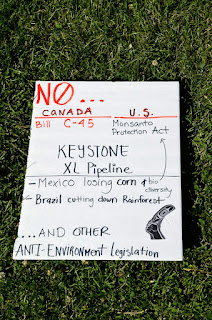 NO...
CANADA U.S.
Bill C-45 Monsanto
Protection Act
KEYSTONE
XL Pipeline
- Mexico losing corn & bio
diversity
- Brazil cutting down Rainforest
...AND OTHER
ANTI-ENVIRONMENT Legislation